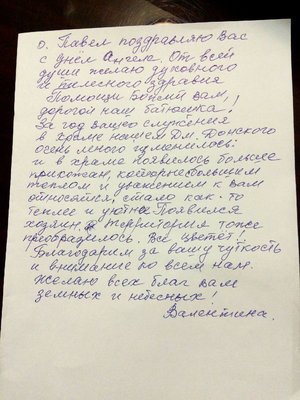 О. Павел поздравляю Вас
с днём Ангела. От всей
души желаю духовного
и телесного здравия
Помощи Божией Вам,
дорогой наш батюшка!
За год вашего служения
в Храме нашем Дм. Донского
осень много изменилось:
и в храме появилось больше
прихожан, которые большим
теплом и уважением к Вам
относятся; стало как-то
теплее и уютне. Появился
хозяин, территория тоже
преобразилось. Всё цветёт!
Благодарим за вашу чуткость
и внимание ко всем нам.
Желаю всех благ Вам
земных и небесных!
Валентина.